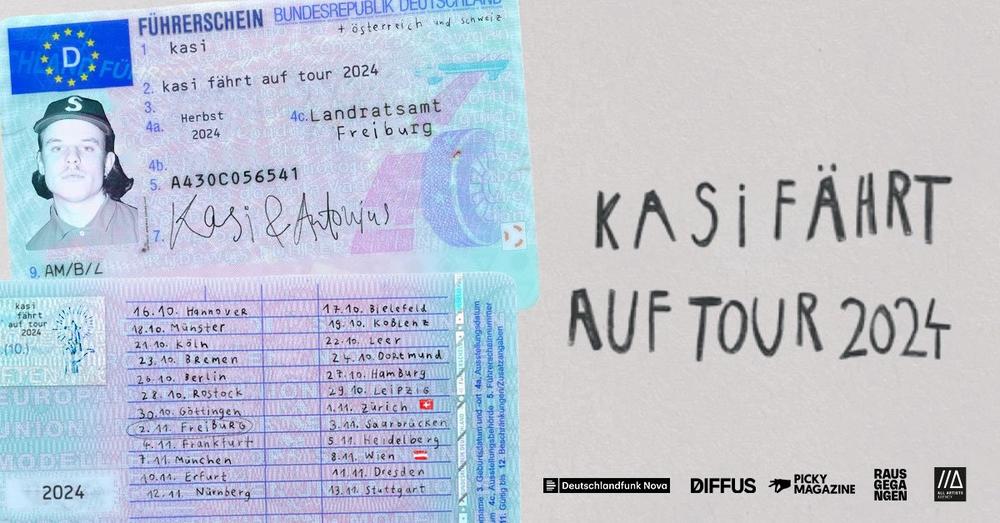 FÜHRERSCHEIN BUNDESREPUBLIK DEUTSCHLAND
+ österreich und schweiz
D
1 kasi
2. kasi fährt auf tour 2024
3.
4a. Herbst 2024
4c. Landratsamt Freiburg
4b.
5. A430C056541
7. Kasi & Antonius
9. AM/B/L
kasi
fährt
auf tour
2024
(10.)
16.10. Hannover
17.10. Bielefeld
18.10. Münster
19.10. Koblenz
21.10. Köln
22.10. Leer
23.10. Bremen
24.10. Dortmund
26.10. Berlin
27.10. Hamburg
28.10. Rostock
29.10. Leipzig
30.10. Göttingen
1.11. Zürich
2.11. Freiburg
3.11. Saarbrücken
4.11. Frankfurt
5.11. Heidelberg
7.11. München
8.11. Wien
10.11. Erfurt
11.11. Dresden
12.11. Nürnberg
13.11. Stuttgart
2024
KASI FÄHRT
AUF TOUR 2024
Deutschlandfunk Nova
DIFFUS
PICKY
MAGAZINE
RAUS
GEGA
NGEN
ALL ARTISTS
AGENCY